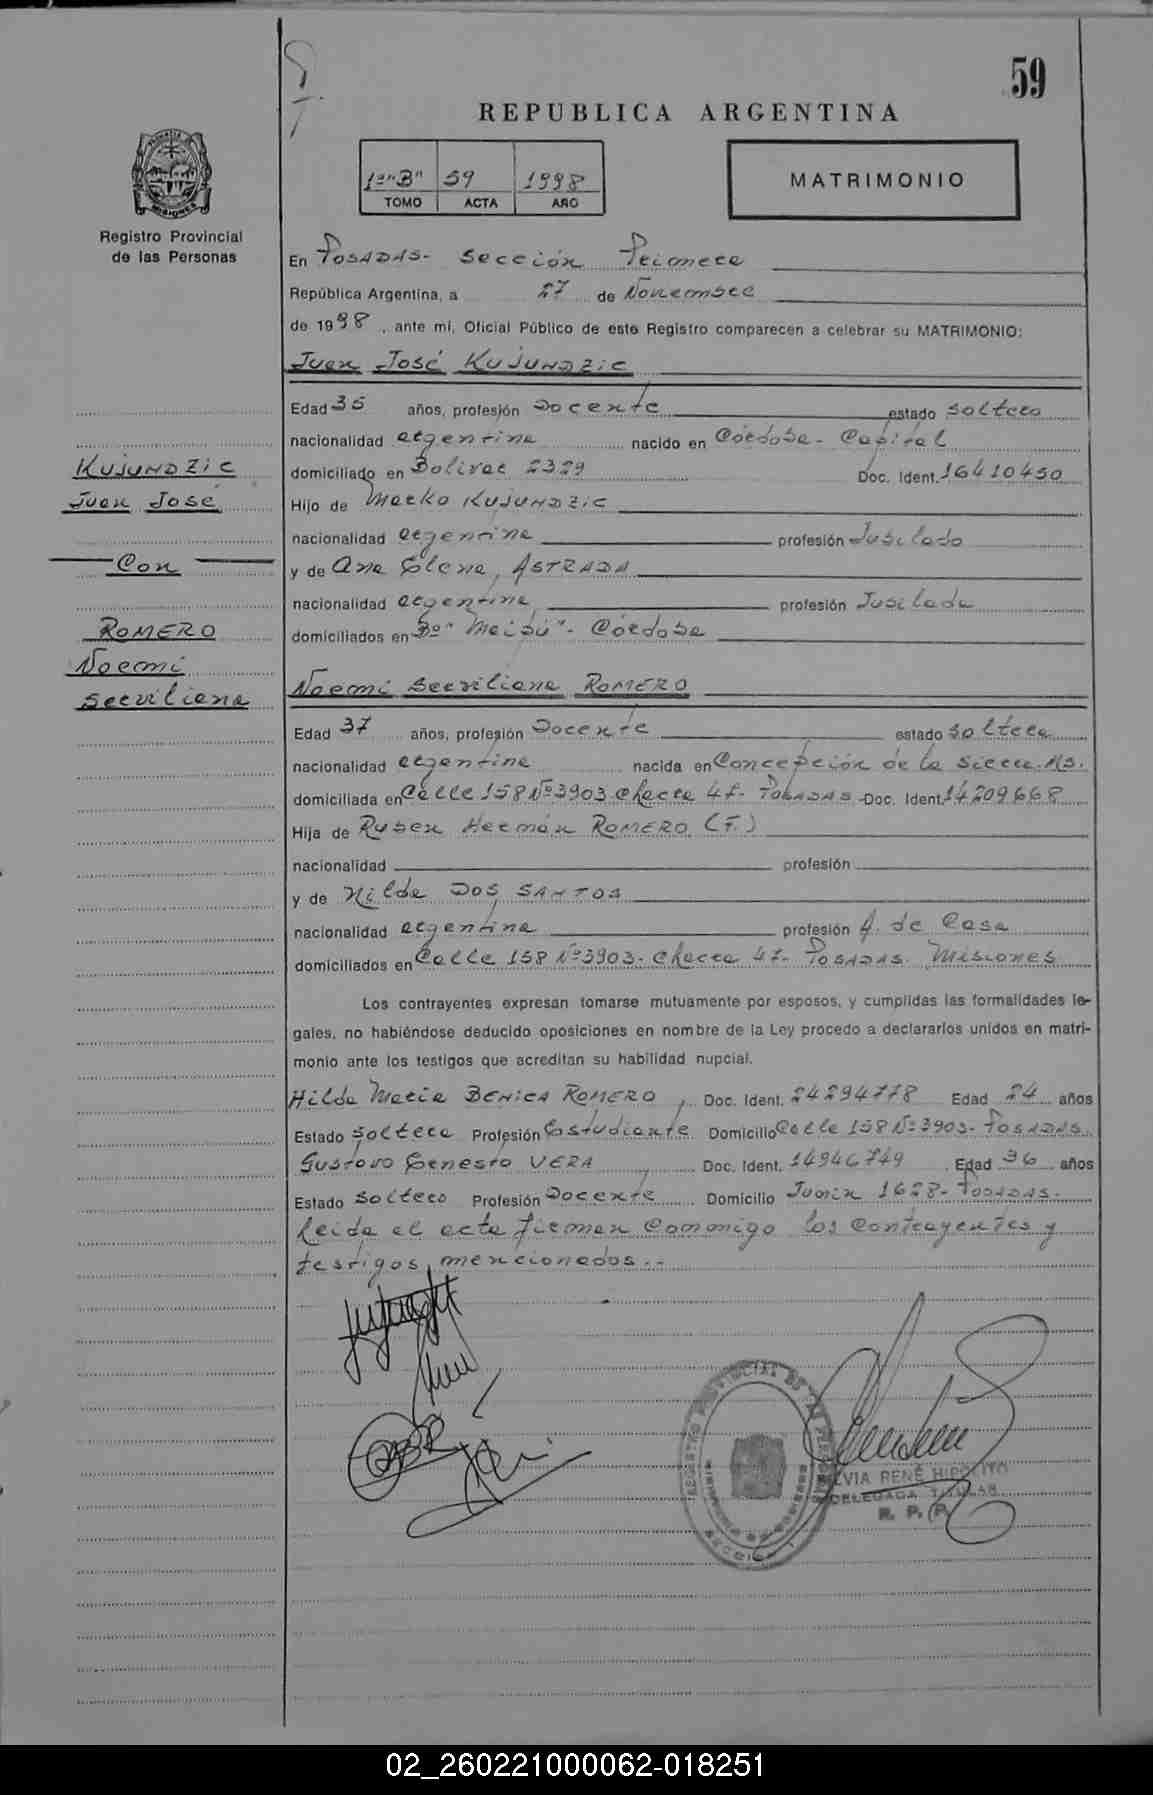 59
REPUBLICA ARGENTINA
1º "B" 59 1998
TOMO ACTA AÑO
MATRIMONIO
Registro Provincial
de las Personas
En Posadas- Sección Primera
República Argentina, a 27 de Noviembre
de 1998, ante mí, Oficial Público de este Registro comparecen a celebrar su MATRIMONIO:
Juan José KUJUNDZIC
Edad 35 años, profesión Docente estado soltero
nacionalidad argentina nacido en Córdoba- Capital
domiciliado en Bolivar 2329 Doc. Ident. 16410450
Hijo de Marko KUJUNDZIC
nacionalidad argentina profesión Jubilado
y de Ana Elena, ASTRADA
nacionalidad argentina, profesión Jubilada
domiciliados en Bº "Maipú"- Córdoba
KUJUNDZIC
Juan José
Con
ROMERO
Noemi
Serviliana
Noemi Serviliana ROMERO
Edad 37 años, profesión Docente estado soltera
nacionalidad argentina nacida en Concepción de la Sierra. Ms.
domiciliada en Calle 158 Nº 3903 Chacra 47- POSADAS -Doc. Ident. 14209668
Hija de Ruben Hernán ROMERO (F.)
nacionalidad profesión
y de Hilda DOS SANTOS
nacionalidad argentina profesión A. de Casa
domiciliados en Calle 158 Nº 3903- Chacra 47- POSADAS. Misiones
Los contrayentes expresan tomarse mutuamente por esposos, y cumplidas las formalidades le-
gales, no habiéndose deducido oposiciones en nombre de la Ley procedo a declararlos unidos en matri-
monio ante los testigos que acreditan su habilidad nupcial.
Hilda Maria BENICA ROMERO, Doc. Ident. 24294778 Edad 24 años
Estado soltera Profesión Estudiante Domicilio Calle 158 Nº 3903- POSADAS.
Gustavo Ernesto VERA, Doc. Ident. 14946749 Edad 36 años
Estado soltero Profesión Docente Domicilio Junin 1628- Posadas-
Leida el acta firman conmigo los contrayentes y
testigos mencionados.--
REGISTRO PROVINCIAL DE LAS PERSONAS
MINISTERIO DE GOBIERNO
SECCION 1
SILVIA RENÉ HIPOLITO
DELEGADA TITULAR
R. P. P.
02_260221000062-018251